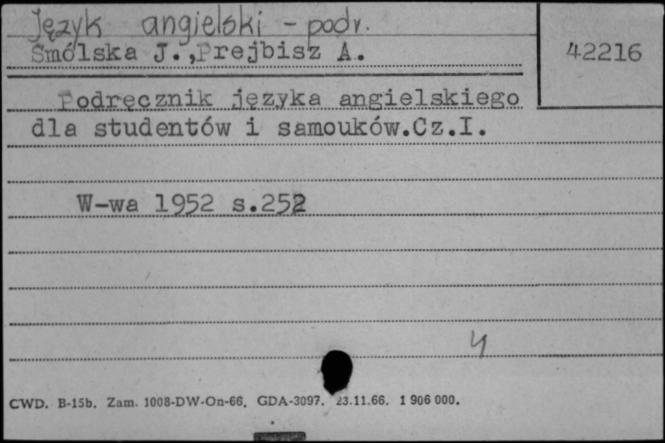 język angielski - podr.
Smólska J.,Prejbisz A.
42216
Podręcznik języka angielskiego
dla studentów i samouków.Cz.I.
W-wa 1952 s.252
4
CWD. B-15b. Zam. 1008-DW-On-66. GDA-3097. 23.11.66. 1 906 000.